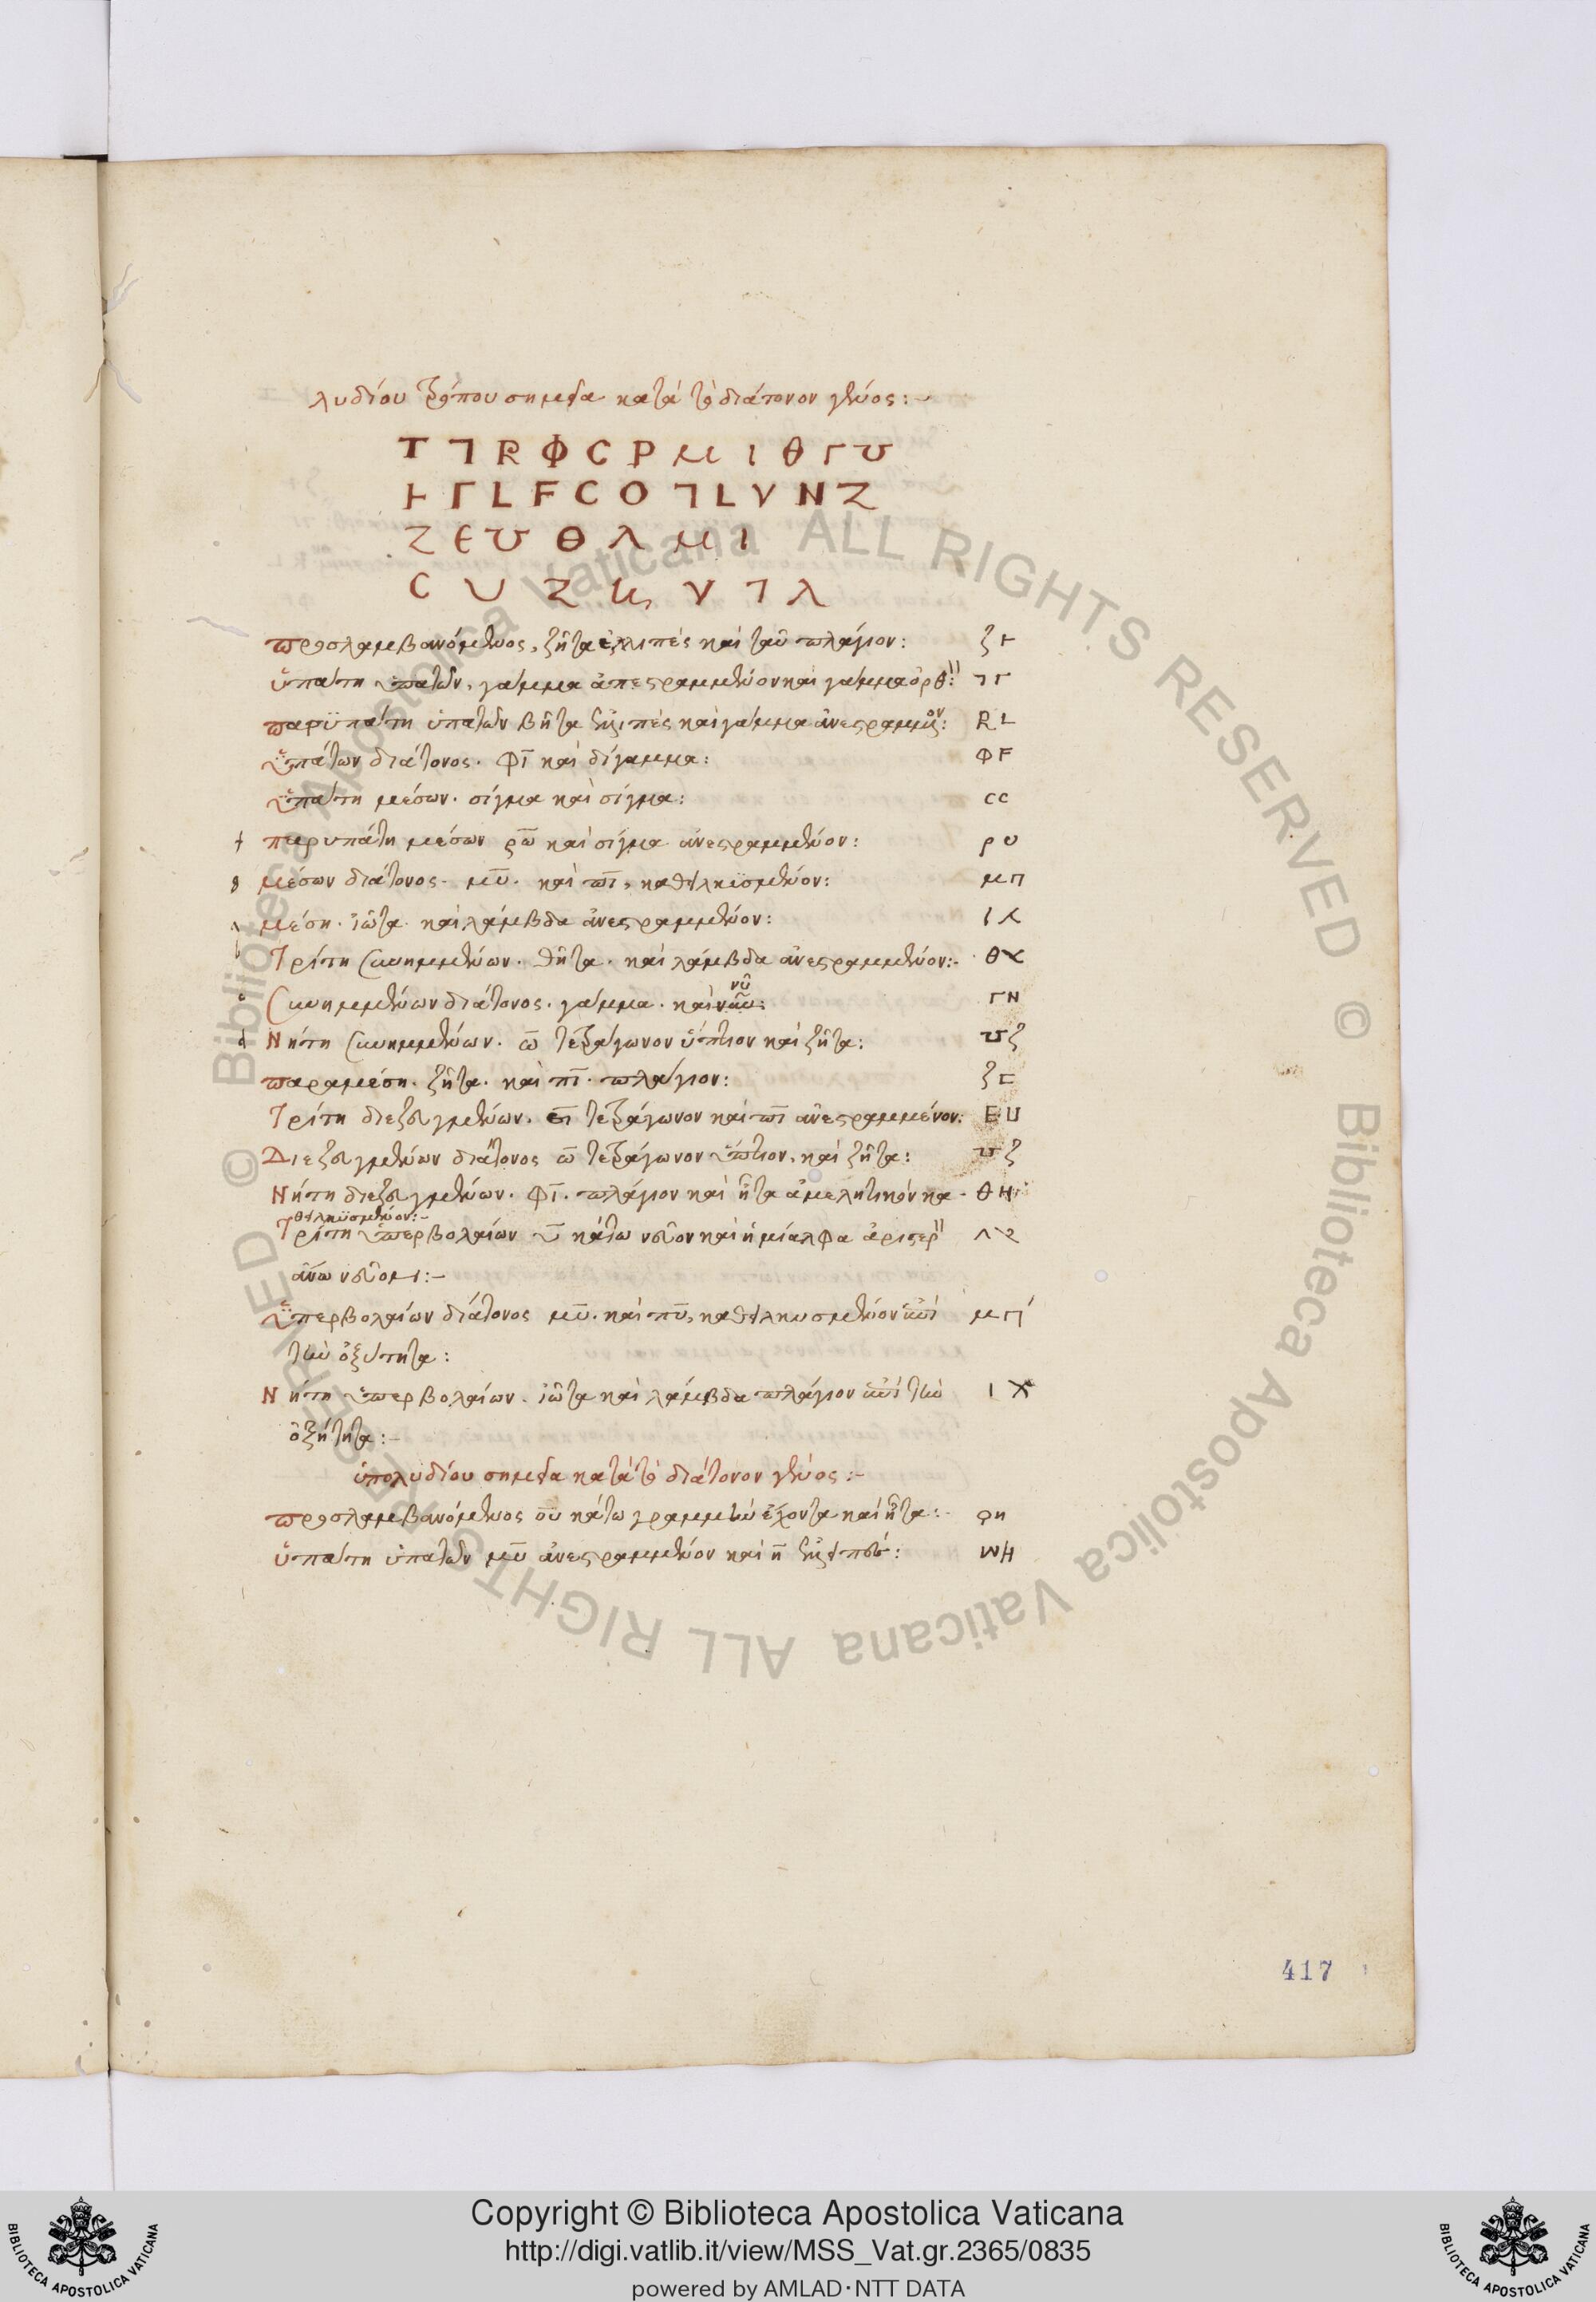 λυδίου τρόπου σημεῖα κατὰ τὸ διάτονον γένος:-
Τ ꓶ R Φ C Ρ Μ Ι Θ Γ Ʊ
Ͱ Γ L F C Ο ꓶ L V Ν Ζ
Ζ Ε Ʊ Θ λ Μ Ι
C U Ζ V ꓶ λ
προσλαμβανόμενος, ζῆτα ἐλλιπὲς καὶ ταῦ πλάγιον: ζ Ͱ
ὑπάτη ὑπατῶν, γάμμα ἀπεστραμμένον καὶ γάμμα ὀρθ: ꓶ Γ
παρυπάτη ὑπατῶν βῆτα ἐλλιπὲς καὶ γάμμα ἀνεστραμμένον: R L
ὑπάτων διάτονος. φῖ καὶ δίγαμμα: Φ F
ὑπάτη μέσων. σίγμα καὶ σίγμα: C C
παρυπάτη μέσων ρῶ καὶ σίγμα ἀνεστραμμένον: ρ υ
μέσων διάτονος. μῦ. καὶ πῖ, καθειλκϋσμένον: μ π
μέση. ἰῶτα καὶ λάμβδα ἀνεστραμμένον: Ι
Τρίτη συνημμένων. θῆτα. καὶ λάμβδα ἀνεστραμμένον:-
συνημμένων διάτονος. γάμμα. καὶ νῦ: Γ Ν
Νήτη συνημμένων. ω τετράγωνον ὕπτιον καὶ ζῆτα: Ʊ ζ
παραμέση. ζῆτα. καὶ πῖ. πλάγιον: ζ ⊏
Τρίτη διεζευγμένων. ε τετράγωνον καὶ πῖ ἀνεστραμμένον: Ε U
Διεζευγμένων διάτονος ω τετράγωνον ὕπτιον, καὶ ζῆτα: Ʊ ζ
Νήτη διεζευγμένων. φῖ. πλάγιον καὶ ἦτα ἀμελητικὸν κα- Θ Η
θειλκϋσμένον:-
Τρίτη ὑπερβολαίων υ κάτω νεῦον καὶ ἡμίαλφα ἀριστερ
ἄνω νεῦον:-
ὑπερβολαίων διάτονος μῦ. καὶ πῦ, καθειλκυσμένον ἐπὶ μ π΄
τὴν ὀξύτητα:
Νήτη ὑπερβολαίων. ἰῶτα καὶ λάμβδα πλάγιον ἐπὶ τὴν
ὀξήτητα:-
ὑπολυδίου σημεῖα κατὰ τὸ διάτονον γένος:-
προσλαμβανόμενος οὐ κάτω γραμμὴν ἔχοντα καὶ ἦτα:- ϙ η
ὑπάτη ὑπατῶν μῦ ἀνεστραμμένον καὶ η
417
Copyright © Biblioteca Apostolica Vaticana
http://digi.vatlib.it/view/MSS_Vat.gr.2365/0835
powered by AMLAD·NTT DATA
BIBLIOTECA APOSTOLICA VATICANA
BIBLIOTECA APOSTOLICA VATICANA
© Biblioteca Apostolica Vaticana ALL RIGHTS RESERVED © Biblioteca Apostolica Vaticana ALL RIGHTS RESERVED